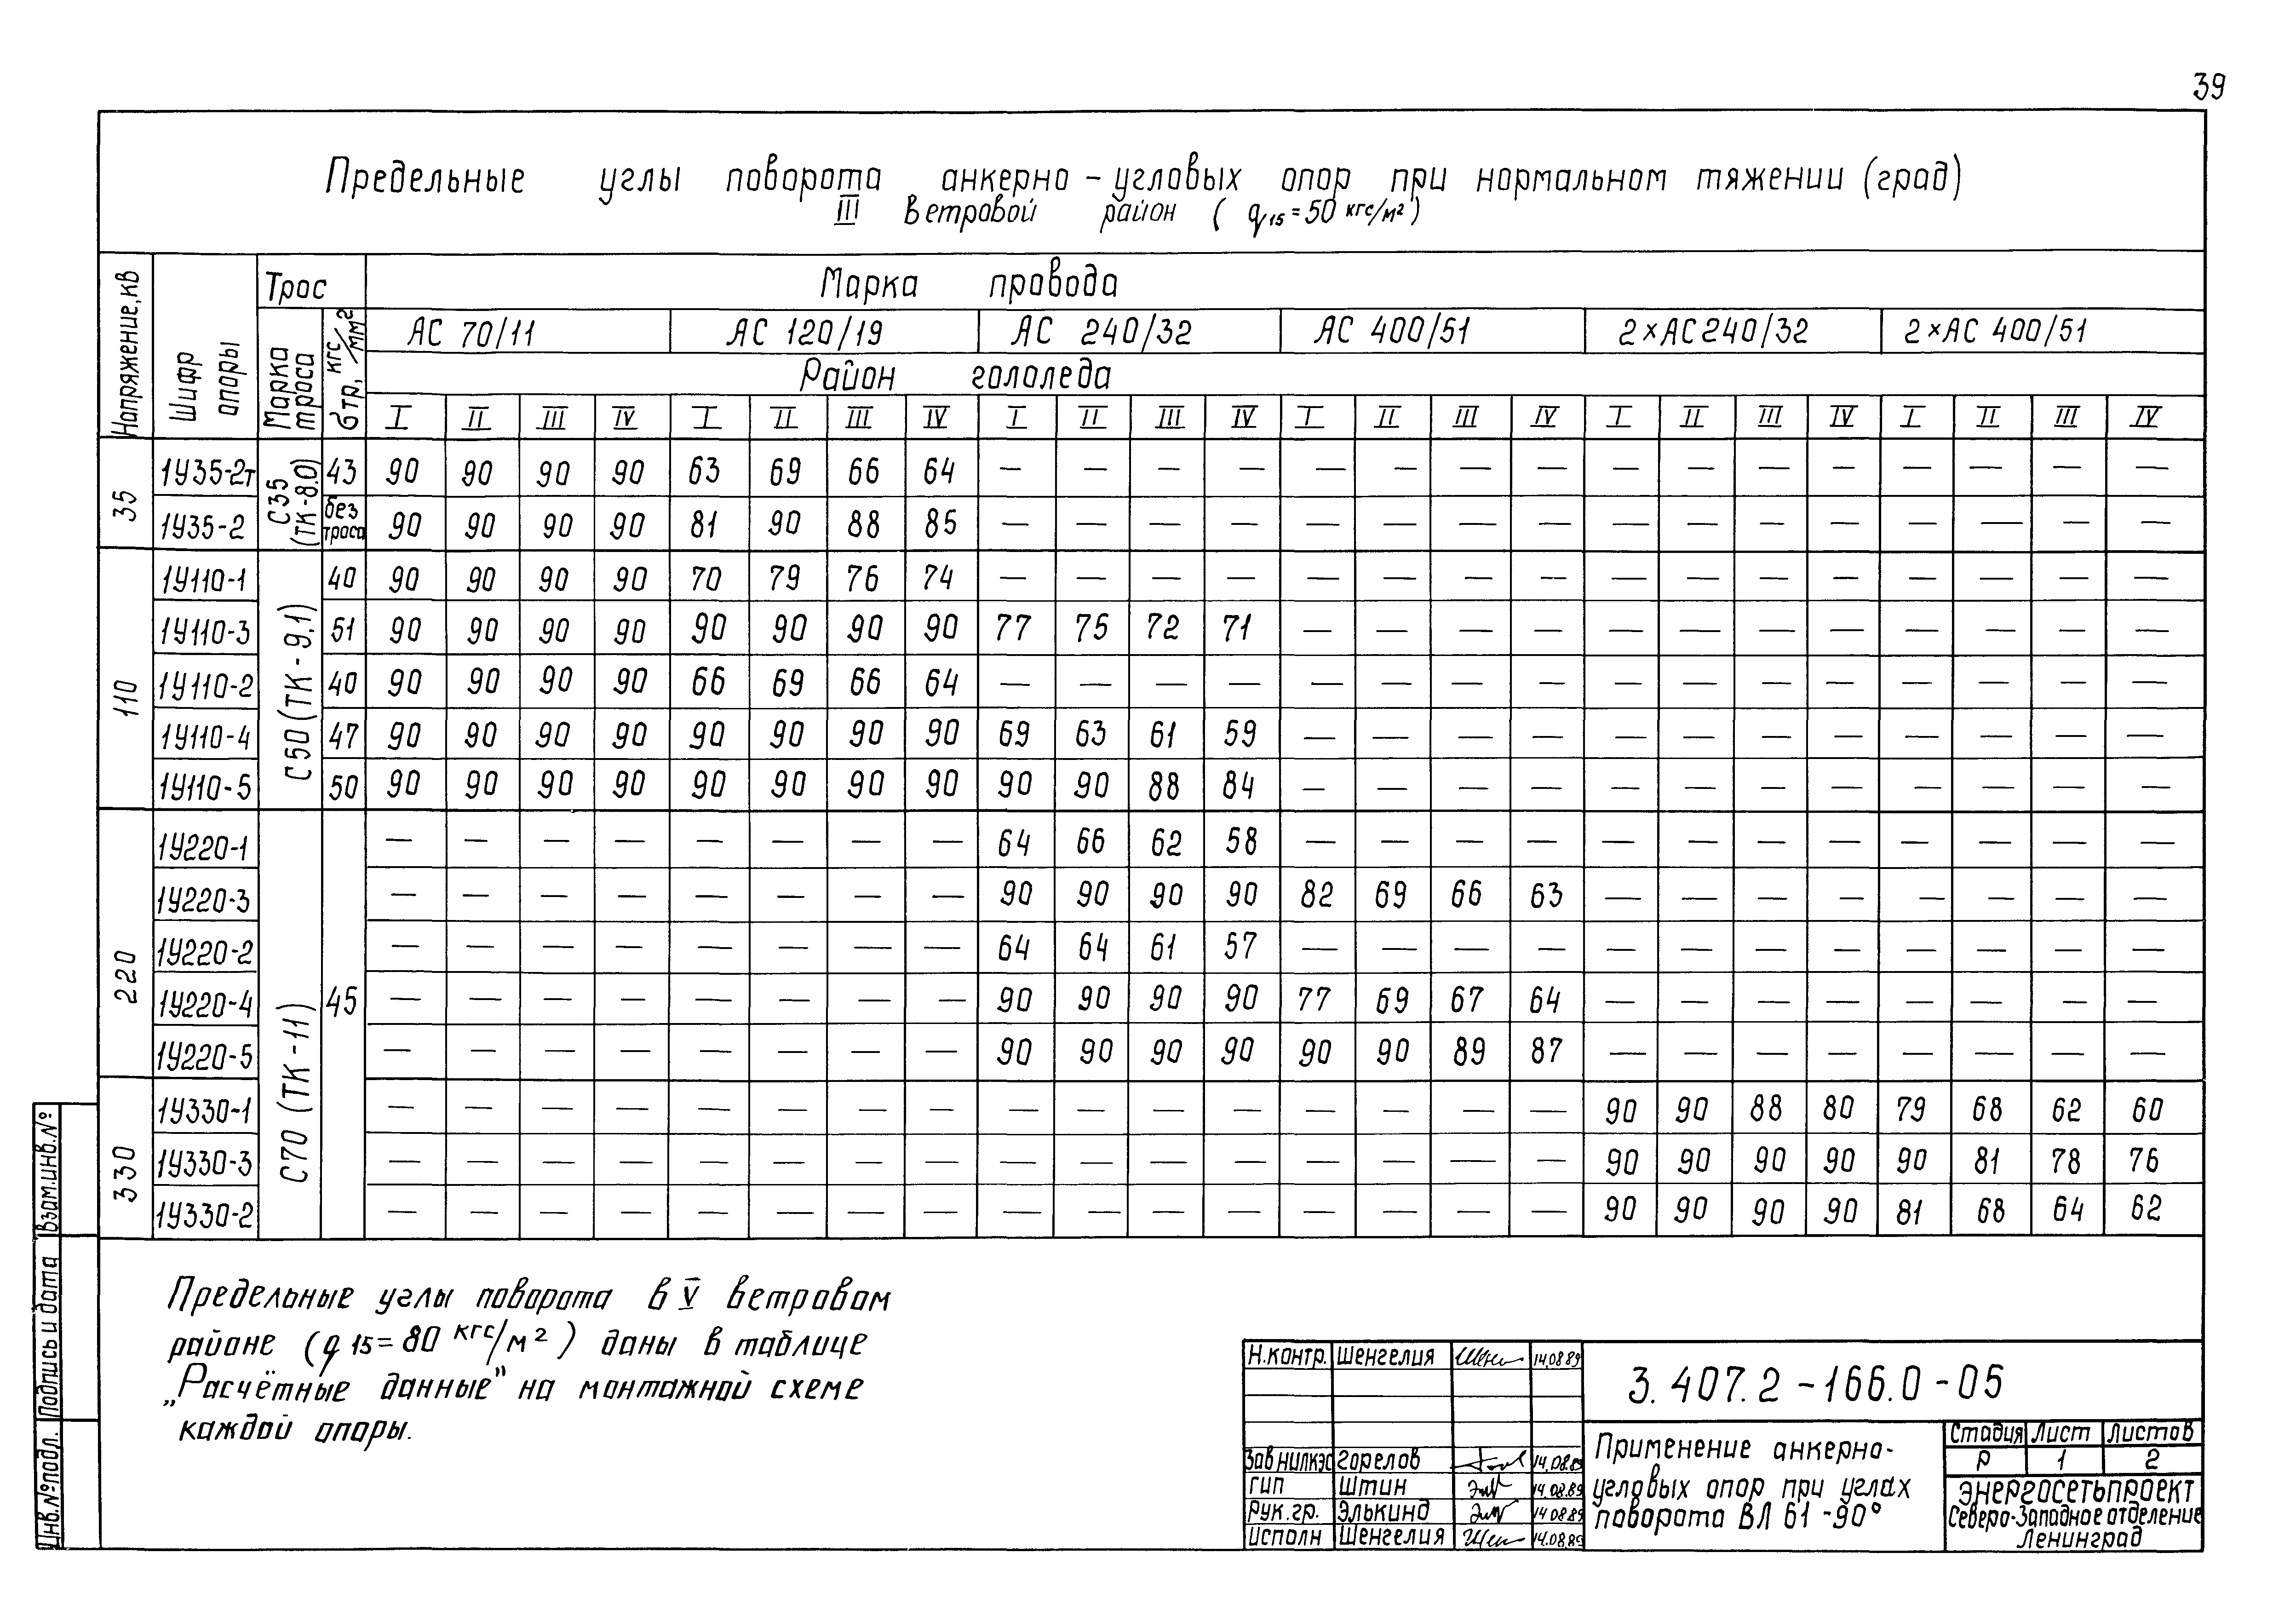 39
Предельные углы поворота анкерно-угловых опор при нормальном тяжении (град)
III ветровой район ( q15 = 50 кгс/м² )
Напряжение, кв
Шифр опоры
Трос
Марка троса
бтр, кгс/мм²
Марка провода
АС 70/11 АС 120/19 АС 240/32 АС 400/51 2×АС 240/32 2×АС 400/51
Район гололеда
I II III IV I II III IV I II III IV I II III IV I II III IV I II III IV
35
С35 (ТК-8.0)
1У35-2т 43 90 90 90 90 63 69 66 64 — — — — — — — — — — — — — — — —
1У35-2 без троса 90 90 90 90 81 90 88 85 — — — — — — — — — — — — — — — —
110
С50 (ТК-9,1)
1У110-1 40 90 90 90 90 70 79 76 74 — — — — — — — — — — — — — — — —
1У110-3 51 90 90 90 90 90 90 90 90 77 75 72 71 — — — — — — — — — — — —
1У110-2 40 90 90 90 90 66 69 66 64 — — — — — — — — — — — — — — — —
1У110-4 47 90 90 90 90 90 90 90 90 69 63 61 59 — — — — — — — — — — — —
1У110-5 50 90 90 90 90 90 90 90 90 90 90 88 84 — — — — — — — — — — — —
220
С70 (ТК-11)
45
1У220-1 — — — — — — — — 64 66 62 58 — — — — — — — — — — — —
1У220-3 — — — — — — — — 90 90 90 90 82 69 66 63 — — — — — — — —
1У220-2 — — — — — — — — 64 64 61 57 — — — — — — — — — — — —
1У220-4 — — — — — — — — 90 90 90 90 77 69 67 64 — — — — — — — —
1У220-5 — — — — — — — — 90 90 90 90 90 90 89 87 — — — — — — — —
330
1У330-1 — — — — — — — — — — — — — — — — 90 90 88 80 79 68 62 60
1У330-3 — — — — — — — — — — — — — — — — 90 90 90 90 90 81 78 76
1У330-2 — — — — — — — — — — — — — — — — 90 90 90 90 81 68 64 62
Предельные углы поворота в V ветровом
районе (q15 = 80 кгс/м²) даны в таблице
„Расчётные данные" на монтажной схеме
каждой опоры.
Взам.инв.№
Подпись и дата
Инв.№подл.
Н.контр. Шенгелия 14.08.89
Зав НИЛКЭС Горелов 14.08.89
ГИП Штин 14.08.89
Рук.гр. Элькинд 14.08.89
Исполн Шенгелия 14.08.89
3.407.2-166.0-05
Применение анкерно-
угловых опор при углах
поворота ВЛ 61-90°
Стадия Лист Листов
Р 1 2
Энергосетьпроект
Северо-Западное отделение
Ленинград